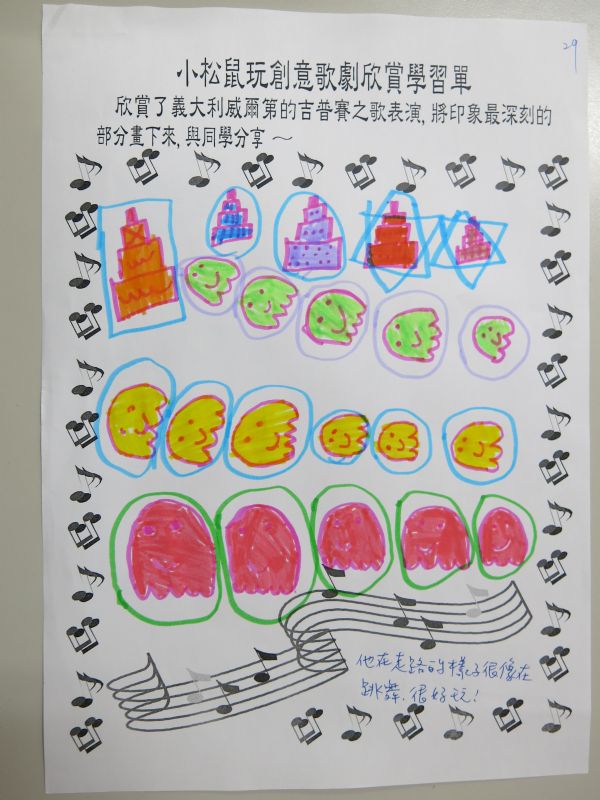 29
小松鼠玩創意歌劇欣賞學習單
欣賞了義大利威爾第的吉普賽之歌表演,將印象最深刻的
部分畫下來,與同學分享～
他在走路的樣子很像在
跳舞.很好玩!